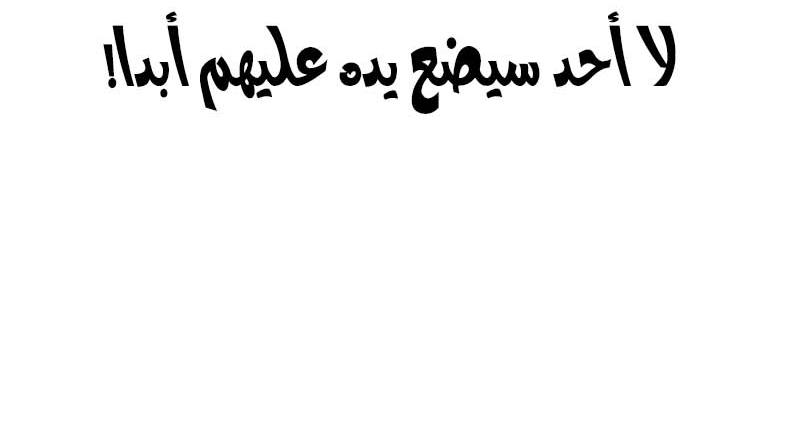 لا أحد سيضع يده عليهم أبدا!